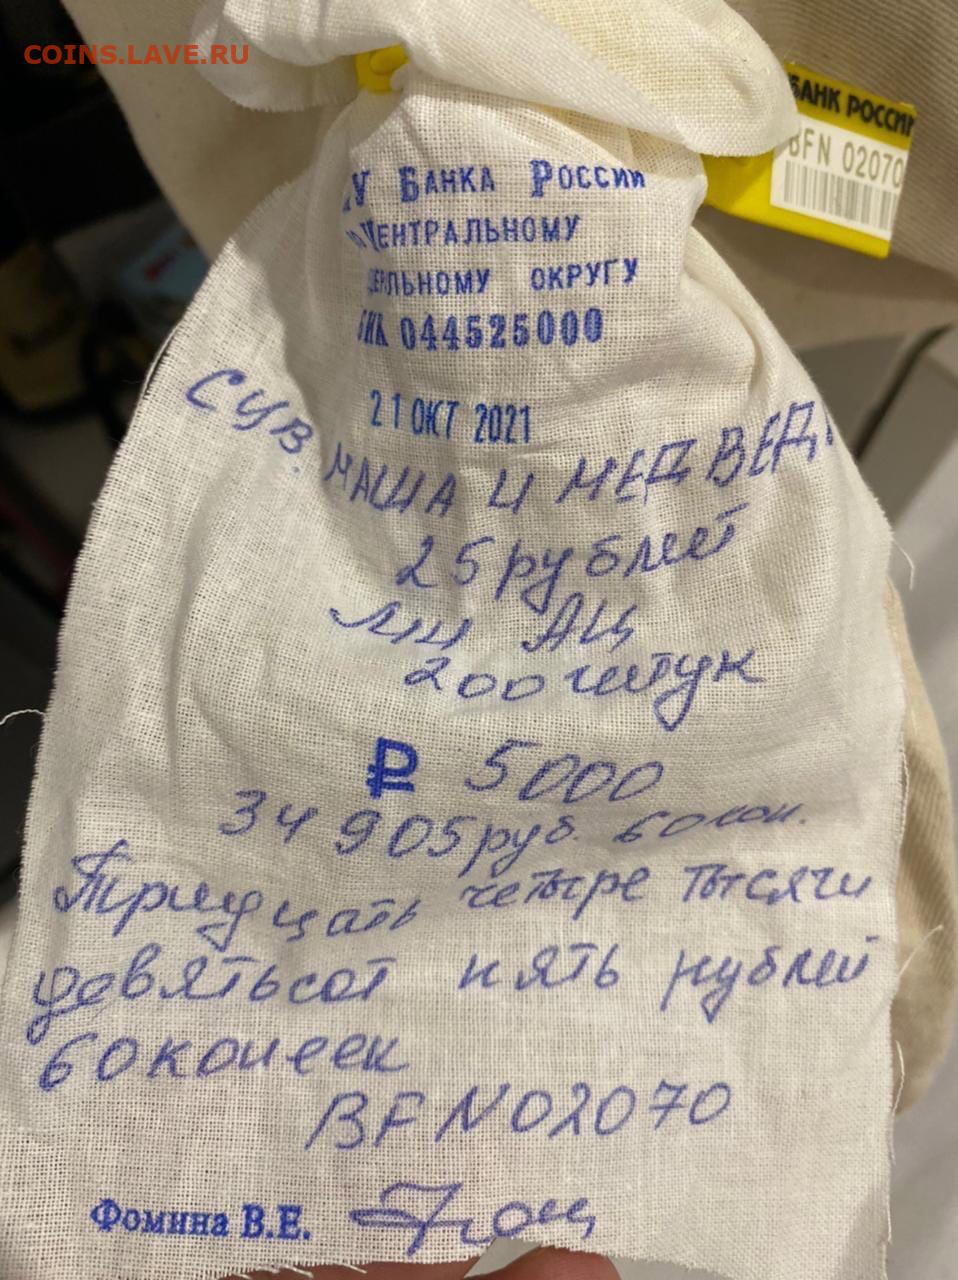 COINS.LAVE.RU
БАНК РОССИИ
BFN 02070
ГУ БАНКА РОССИИ
ПО ЦЕНТРАЛЬНОМУ
ФЕДЕРАЛЬНОМУ ОКРУГУ
БИК 044525000
21 ОКТ 2021
СУВ. МАША И МЕДВЕДЬ
25 рублей
ММ АЦ
200 штук
₽ 5000
34 905 руб. 60 коп.
Тридцать четыре тысячи
девятьсот пять рублей
60 копеек
BFN02070
Фомина В.Е.